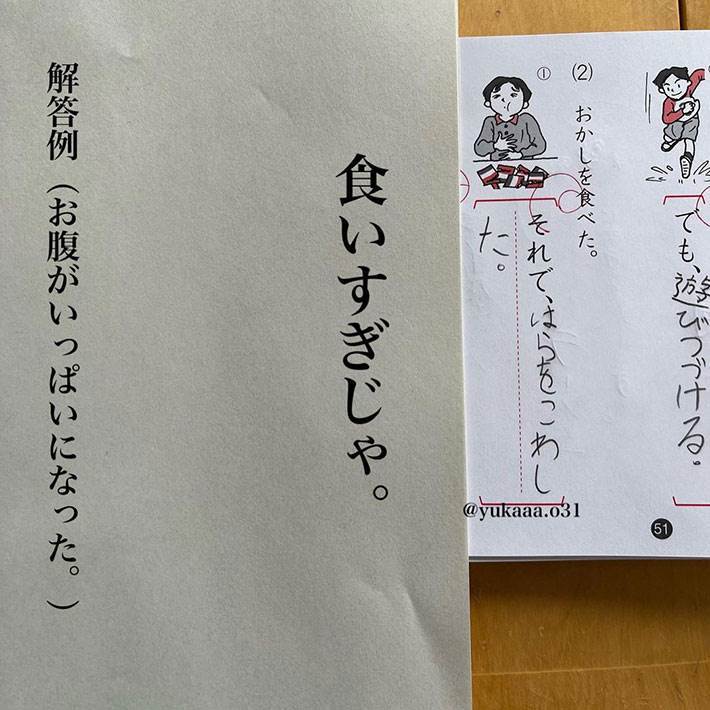 でも、遊びつづける。
(2) おかしを食べた。
①
それで、はらをこわし
た。
51
@yukaaa.o31
食いすぎじゃ。
解答例（お腹がいっぱいになった。）